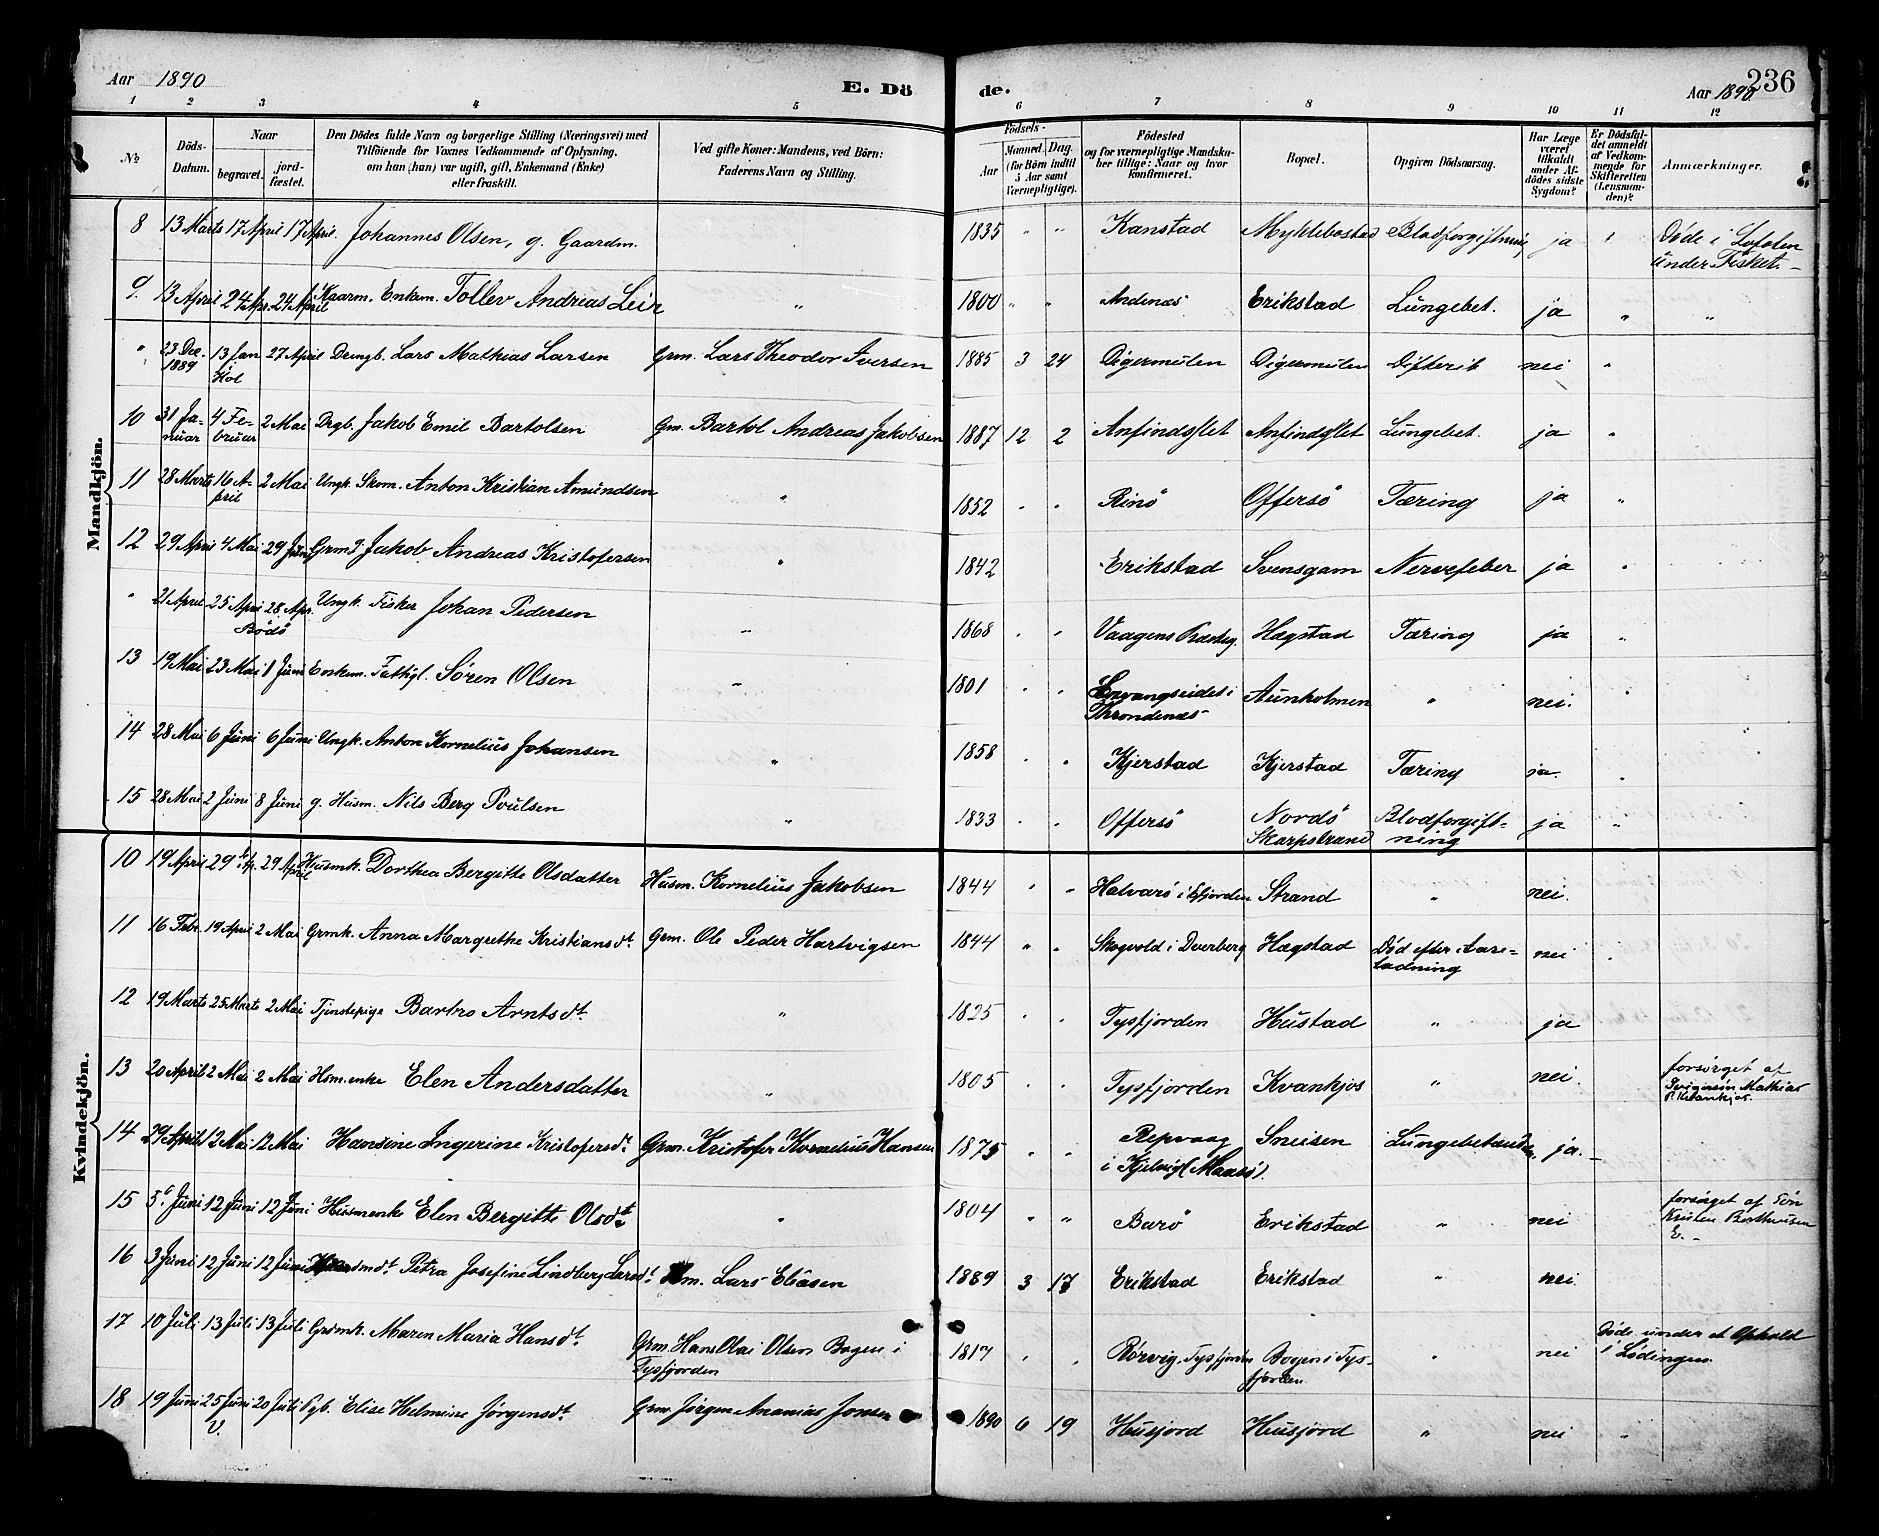 Aar 1890
E. Dö
de.
Aar 1890
236
1 2 3 4 5 6 7 8 9 10 11 12
№
Döds-
Datum.
Naar
begravet.
jord-
fæstet.
Den Dödes fulde Navn og borgerlige Stilling (Næringsvei) med
Tilföiende for Voxnes Vedkommende af Oplysning,
om han (hun) var ugift, gift, Enkemand (Enke)
eller fraskilt.
Ved gifte Koner: Mandens, ved Börn:
Faderens Navn og Stilling.
Födsels-
Aar
Maaned. Dag.
(for Börn indtil
5 Aar samt
Værnepligtige).
Födested
og for værnepligtige Mandska-
ber tillige: Naar og hvor
konfirmeret.
Bopæl.
Opgiven Dödsaarsag.
Har Læge
været
tilkaldt
under Af-
dödes sidste
Sygdom?
Er Dödsfal-
det anmeldt
af Vedkom-
mende for
Skifteretten
(Lensman-
den)?
Anmærkninger.
Mandkjön.
8 13 Marts 17 April 17 April. Johannes Olsen, g. Gaardm. 1835 " " Kanstad Myklebostad Blodforgiftning ja " Døde i Lofoten
under Fisket.—
9. 13 April 24 Apr. 24 April Kaarm. Enkem. Tollev Andreas Leir " 1800 " " Andenæs Erikstad Lungebet. ja " "
" 23 Dec. 1889 13 Jan Hol 27 April Drengb. Lars Mathias Larsen Grm. Lars Theodor Iversen 1885 3 24 Digermulen Digermulen Difterit nei "
10 31 Ja-
nuar 4 Fe-
bruar 2 Mai Drgb. Jakob Emil Bartolsen Gm. Bartol Andreas Jakobsen 1887 12 2 Anfindslet Anfindslet Lungebet. ja "
11 28 Marts 16 A-
pril 2 Mai Ungk. Skom. Anton Kristian Amundsen " 1852 " " Rinö Offersö Tæring ja "
12 29 April 4 Mai 29 Juni Grm. Jakob Andreas Kristofersen " 1842 Erikstad Svensgam Nervefeber ja "
" 21 April 25 April Bödö 28 Apr. Ungk. Fisker Johan Pedersen " 1868 " " Vaagens Præsteg. Hægstad Tæring ja "
13 19 Mai 23 Mai 1 Juni Enkem. Fattigl. Sören Olsen " 1801 " " Throndenæs Aunholmen " nei. "
14 28 Mai 6 Juni 6 Juni Ungk. Anton Kornelius Johansen " 1858 " " Kjerstad Kjerstad Tæring ja. "
15 28 Mai 2 Juni 8 Juni g. Husm. Nils Berg Poulsen " 1833 " " Offersö Nordö
Skarpstrand Blodforgift-
ning ja "
Kvindekjön.
10 19 April 29 Ap. 29 April Husmk. Dorthea Bergitte Olsdatter Husm. Kornelius Jakobsen 1844 " " Halvarö i Efjorden Strand " nei.
11 16 Febr. 19 April 2 Mai Grmk. Anna Margrethe Kristiansdt. Grm. Ole Peder Hartvigsen 1844 " " Skogvold i Dverberg Hægstad Död efter Aare-
ladning nei "
12 19 Marts 25 Marts 2 Mai Tjenstepige Barbro Arntsdt. " 1825 " " Tysfjorden Hustad " ja
13 20 April 2 Mai 2 Mai Hsm.enke Elen Andersdatter " 1805 " " Tysfjorden Kvankjos " nei. forsörget af
Svigersön Mathias
P. Kvankjos.
14 29 April 12 Mai 12 Mai Hansine Ingerine Kristofersdt. Grm. Kristofer Kornelius Hansen 1875 " " Repvaag
i Kjelvig (Maasö). Sneisen ja.
15 5 Juni 12 Juni 12 Juni Husmenke Elen Bergitte Olsdt. " 1804 " " Barö Erikstad " nei forsörget af Sön
Kristen Bertheusen
E.—
16 3 Juni 12 Juni 12 Juni Petra Josefine Lindberg Larsdt. Hm. Lars Eliasen 1889 3 17 Erikstad Erikstad " nei.
17 10 Juli 13 Juli 13 Juli Grdmk. Maren Maria Hansdt. Grm. Hans Olai Olsen Bogen i
Tysfjorden 1817 " " Rörvig, Tysfjorden Bogen i Tys-
fjorden " nei Döde under et Ophold
i Lödingen.
18 19 Juni 25 Juni 20 Juli Pgb. Elise Helmine Jörgensdt. Grm. Jörgen Ananias Jonsen 1890 0 19 Husjord Husjord " nei "